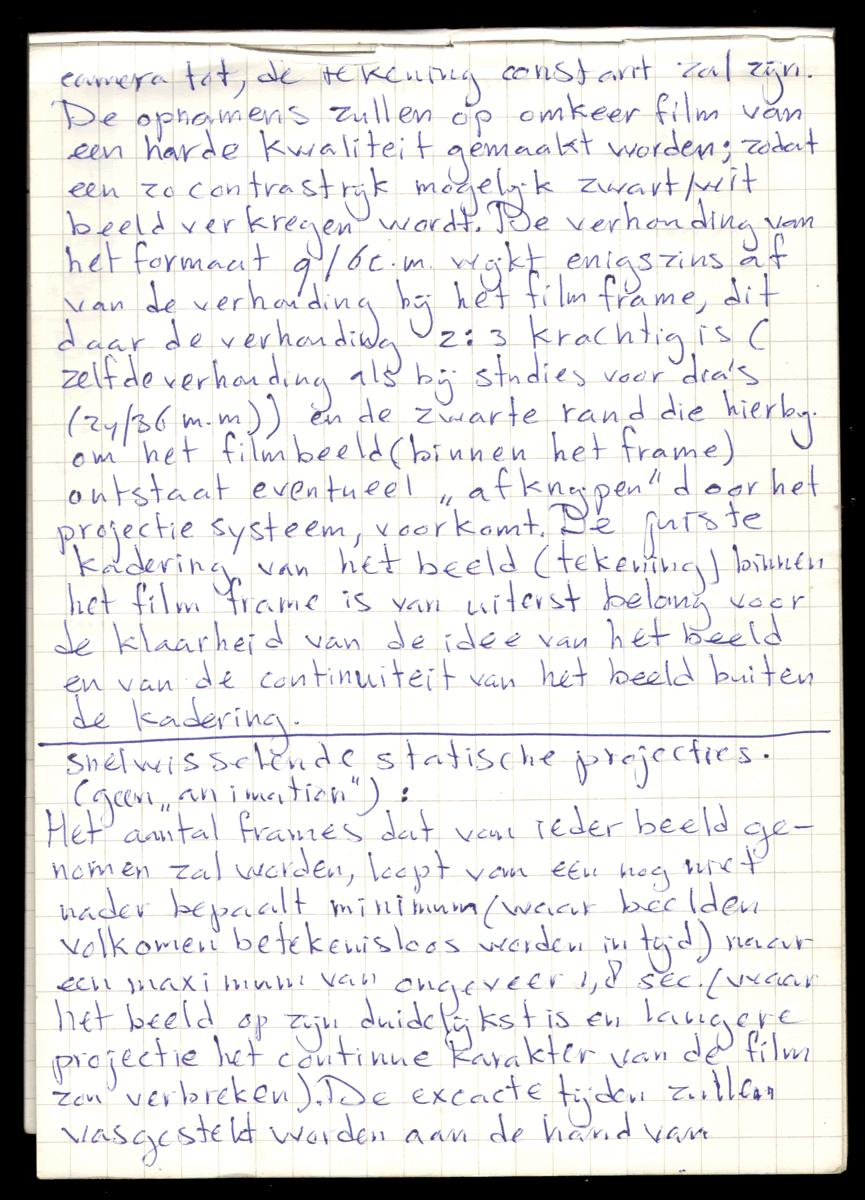 camera tot, de tekening constant zal zijn.
De opnamens zullen op omkeer film van
een harde kwaliteit gemaakt worden; zodat
een zo contrastrijk mogelijk zwart/wit
beeld verkregen wordt. De verhouding van
het formaat 9/6 c.m. wijkt enigszins af
van de verhouding bij het film frame, dit
daar de verhouding 2:3 krachtig is (
zelfde verhouding als bij studies voor dia's
(24/36 m.m)) en de zwarte rand die hierby.
om het filmbeeld (binnen het frame)
ontstaat eventueel „afknypen" door het
projectie systeem, voorkomt. De juiste
kadering van het beeld (tekening) binnen
het film frame is van uiterst belang voor
de klaarheid van de idee van het beeld
en van de continuiteit van het beeld buiten
de kadering.
snelwisselende statische projecties.
(geen „animation") :
Het aantal frames dat van ieder beeld ge-
nomen zal worden, loopt van een nog niet
nader bepaalt minimum (waar beelden
volkomen betekenisloos worden in tijd) naar
een maximum van ongeveer 1,8 sec. (waar
het beeld op zijn duidelijkst is en langere
projectie het continue karakter van de film
zou verbreken). De excacte tijden zullen
vasgesteld worden aan de hand van